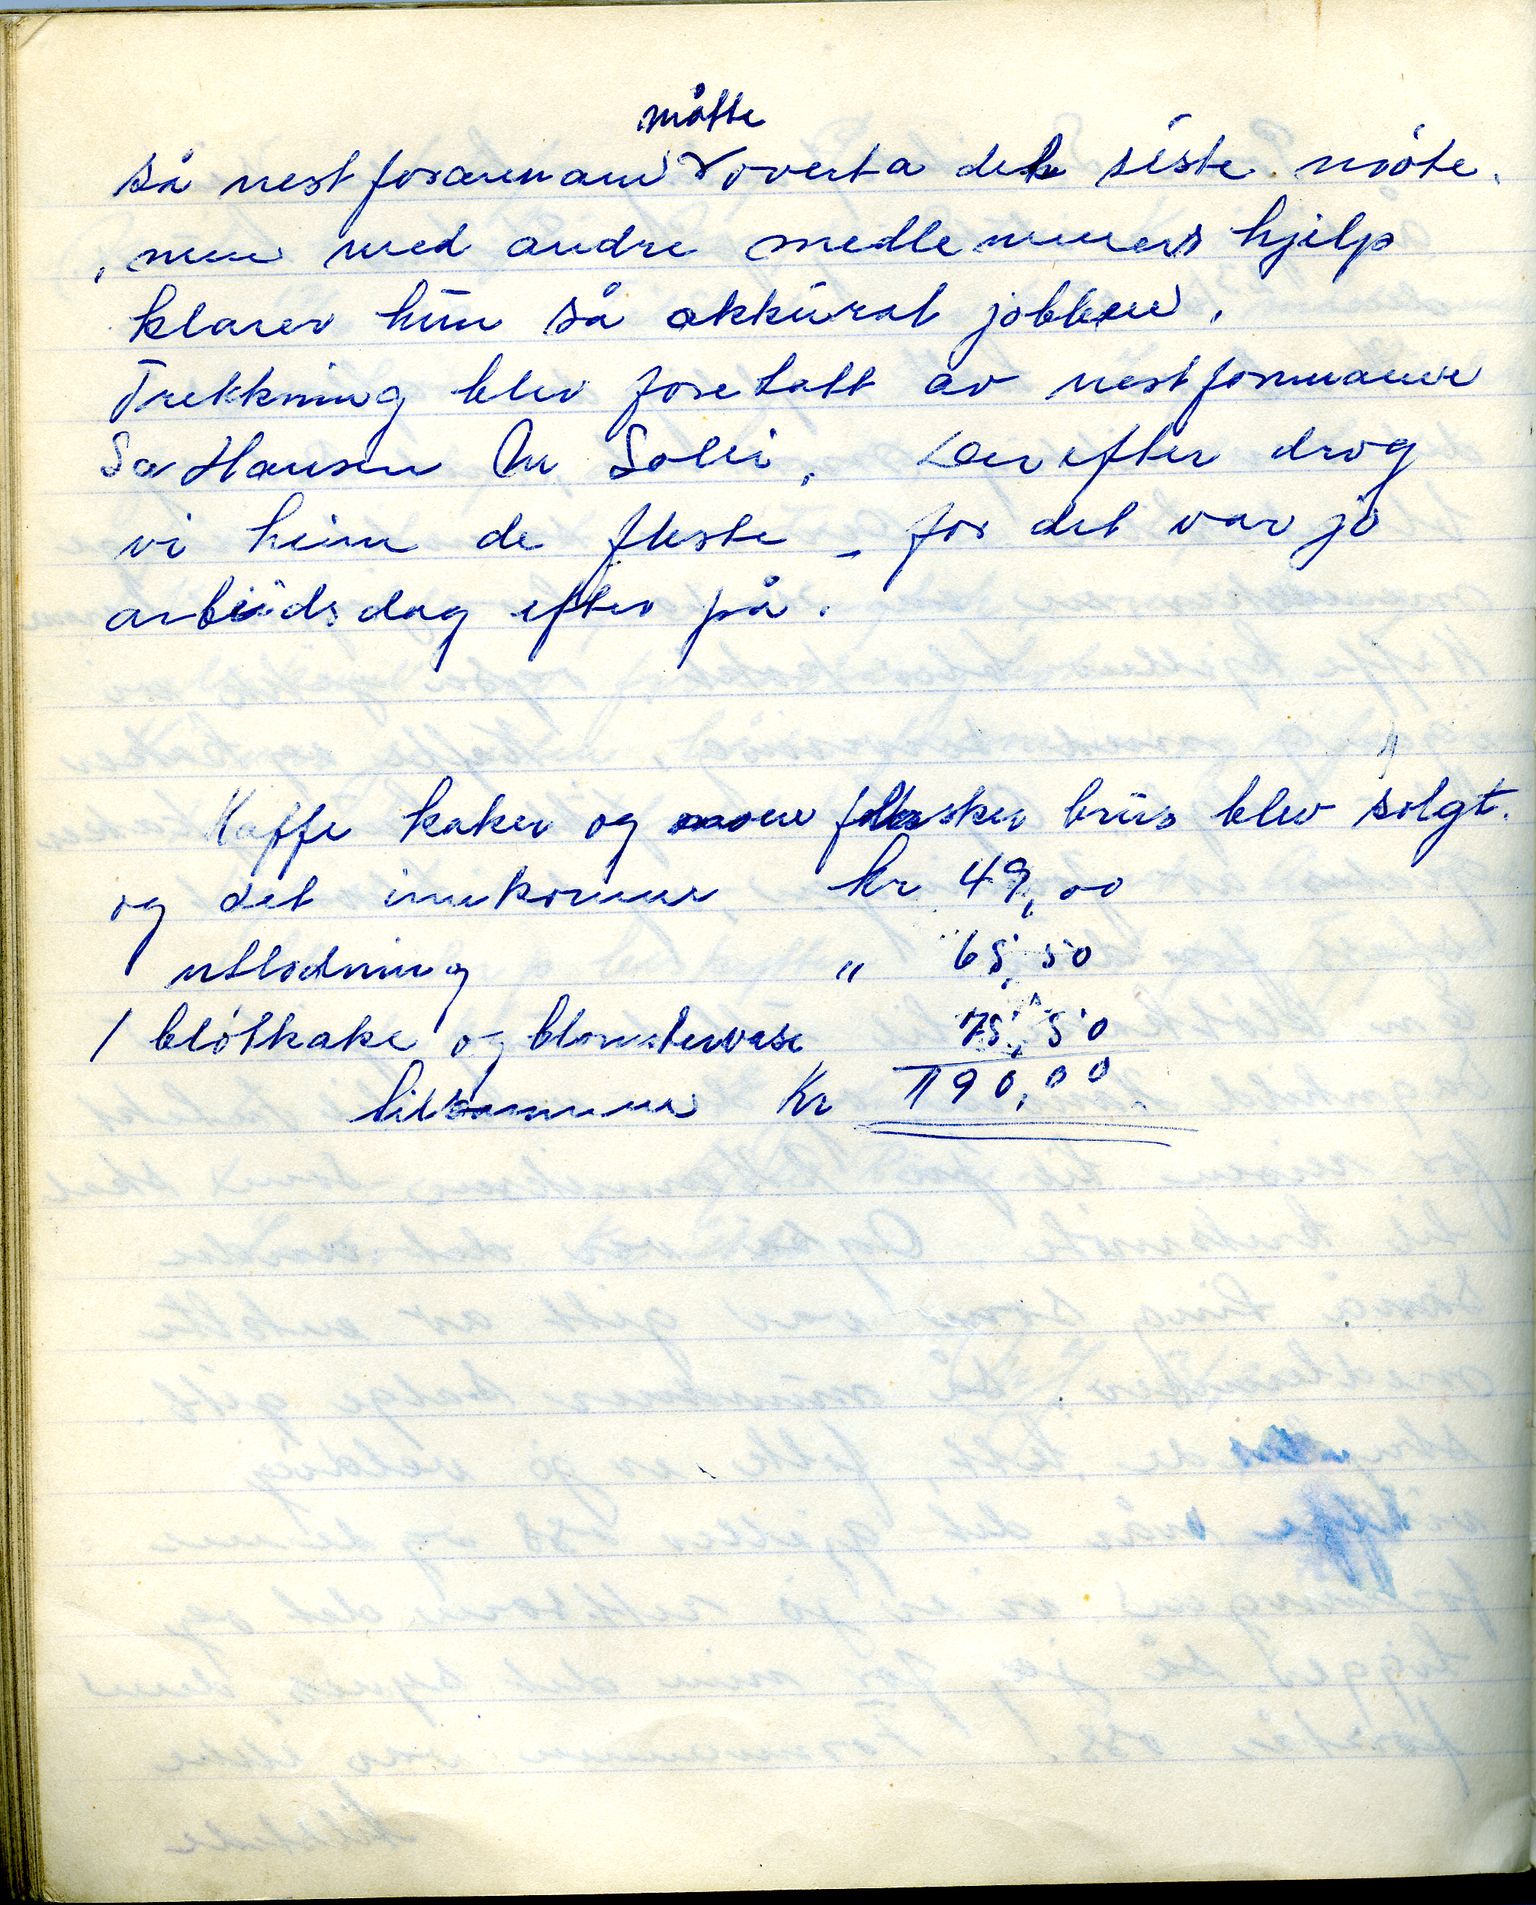 måtte
så nestforannann overta det siste møte.
, men med andre medlemmers hjelp
klarer hun så akkurat jobben.
Trekkning blev foretatt av nestformann
Sa Hansen Solli. Derefter drog
vi heim de fleste – for det var jo
arbeidsdag efter på.
Kaffe kaker og noen flasker brus blev solgt.
og det innkommer kr 49,00
utlodning " 65,50
1 bløtkake og blomstervase 75,50
tilsammen Kr 190,00